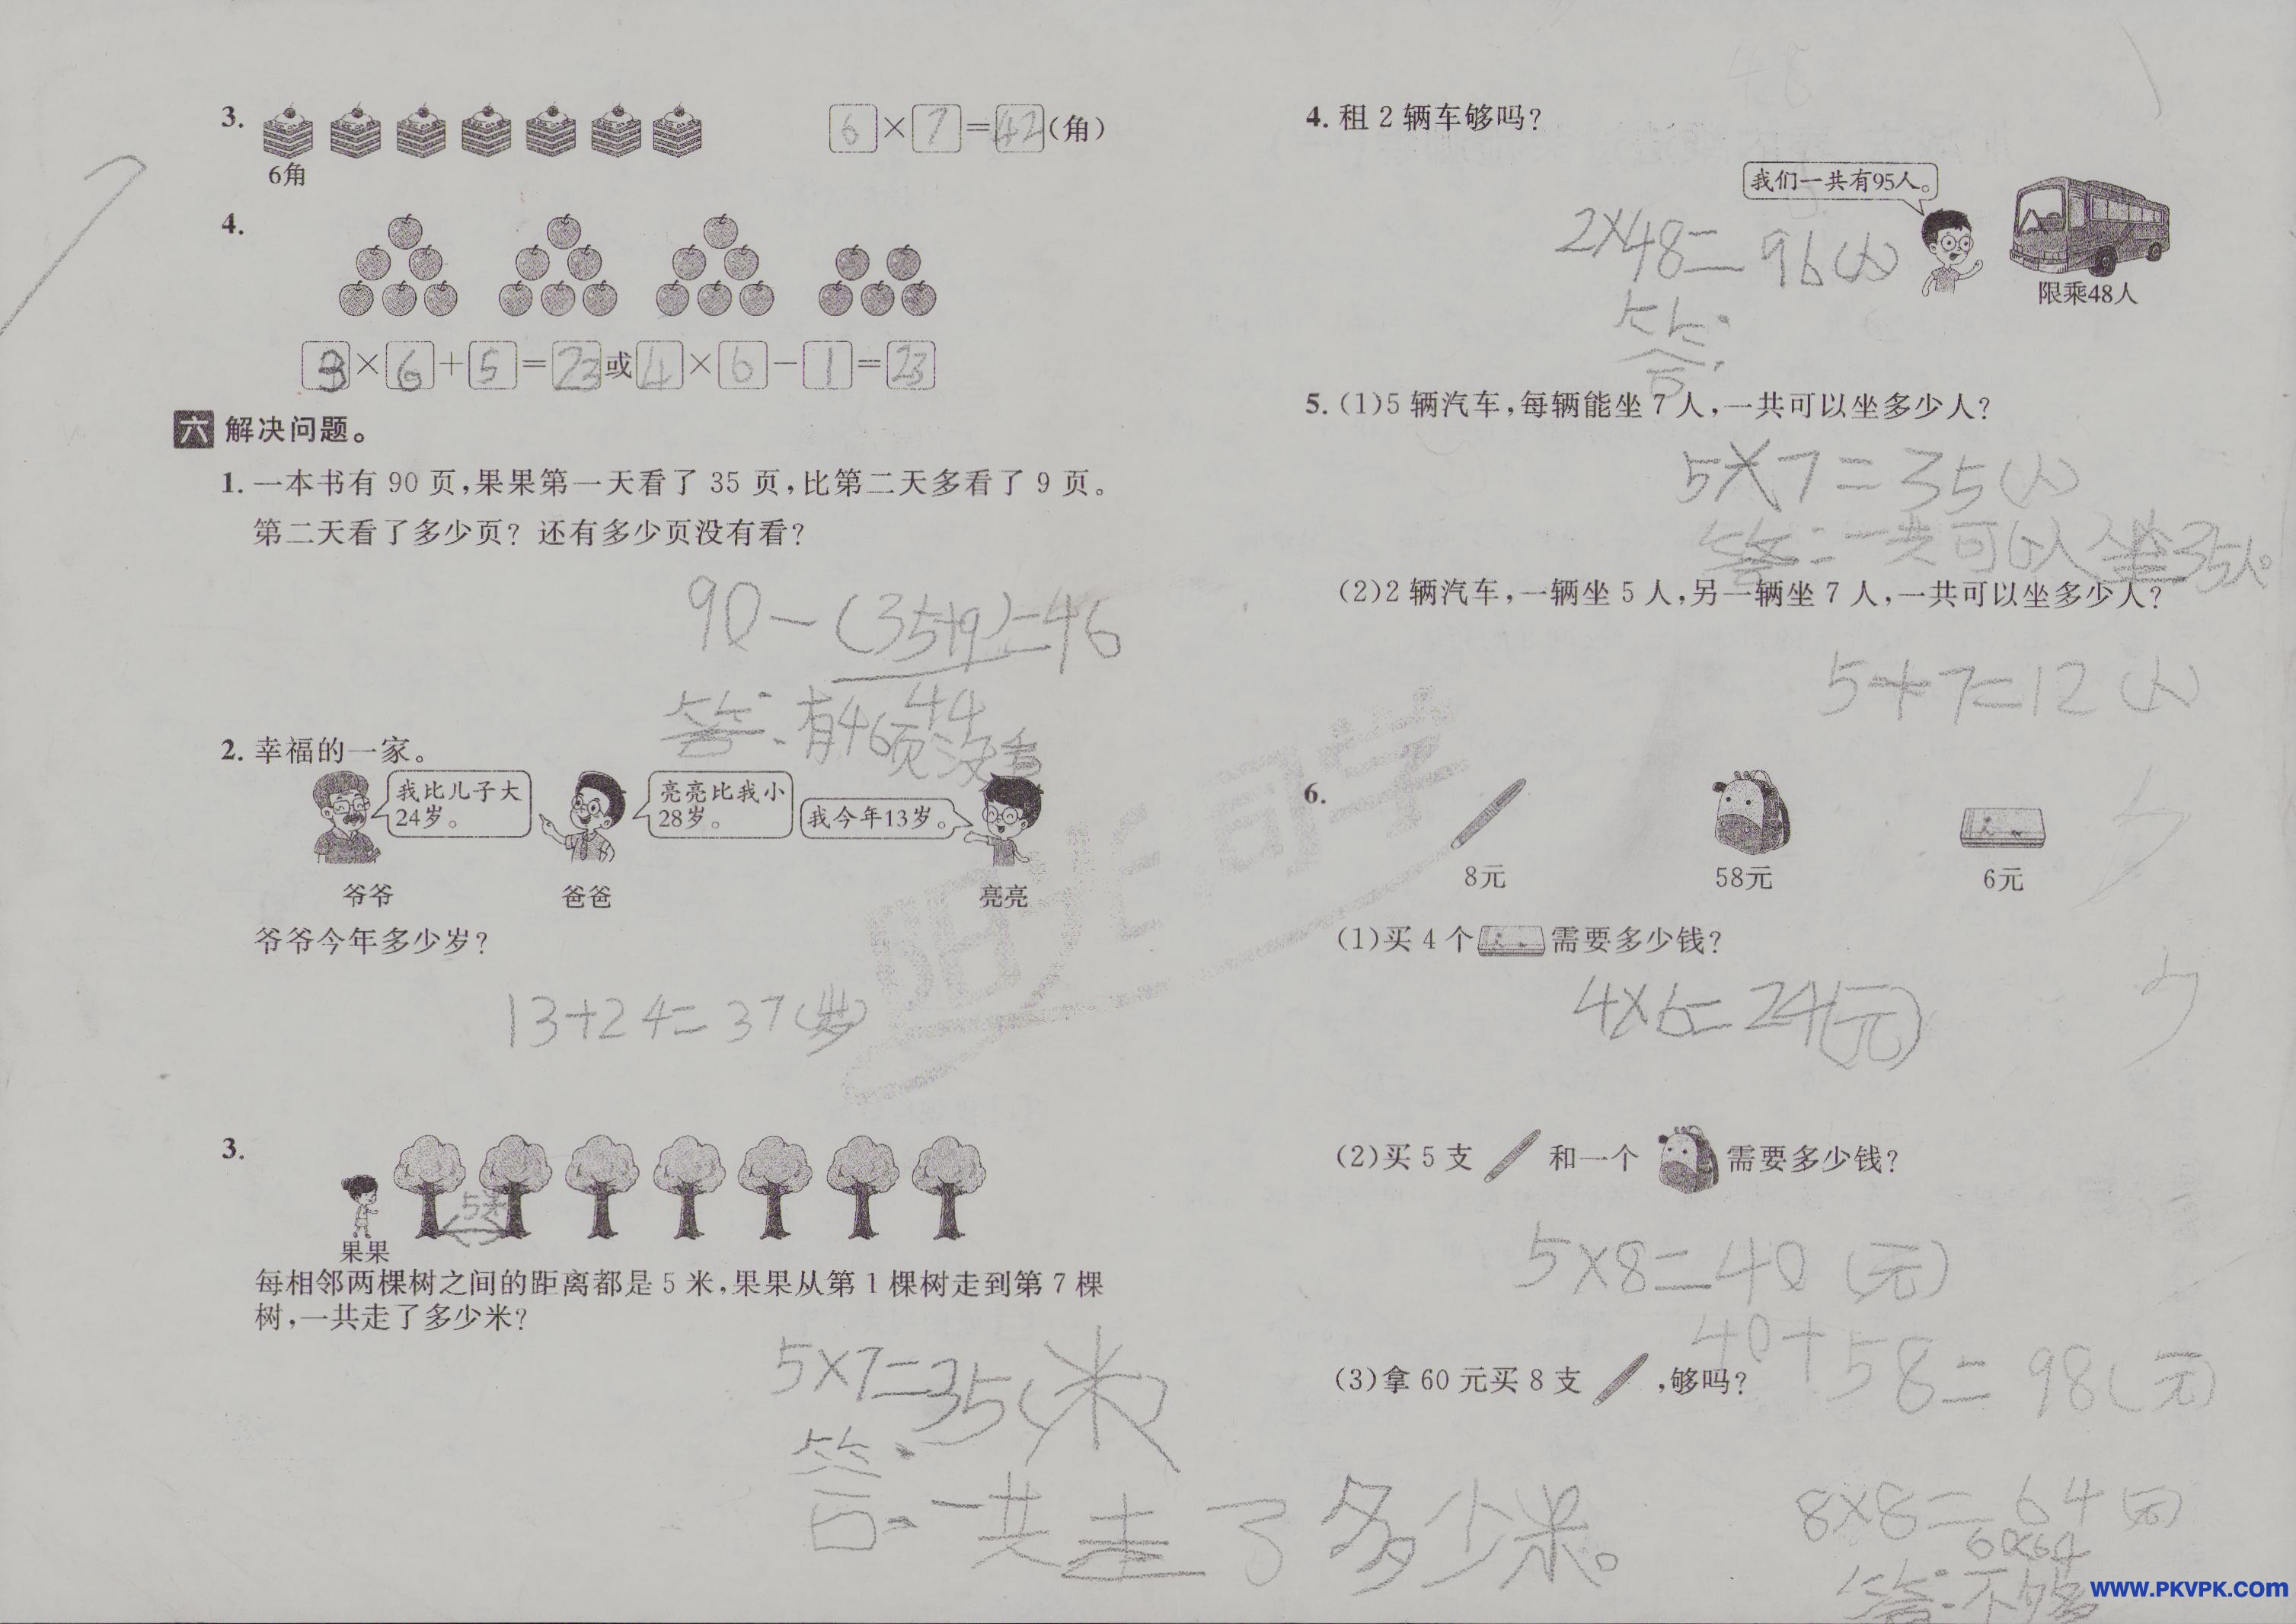 3.
6 × 7 = 42 (角)
6角
4.
3 × 6 + 5 = 23 或 4 × 6 - 1 = 23
六 解决问题。
1. 一本书有 90 页,果果第一天看了 35 页,比第二天多看了 9 页。
第二天看了多少页? 还有多少页没有看?
90-(35+9)=46
44
答:有46页没看
2. 幸福的一家。
我比儿子大
24岁。
亮亮比我小
28岁。
我今年13岁。
爷爷 爸爸 亮亮
爷爷今年多少岁?
13+24=37(岁)
阳光同学
3.
5米
果果
每相邻两棵树之间的距离都是 5 米,果果从第 1 棵树走到第 7 棵
树,一共走了多少米?
5×7=35(米)
答:一共走了多少米。
48
4. 租 2 辆车够吗?
我们一共有95人。
2×48=96(人)
限乘48人
答:
5. (1)5 辆汽车,每辆能坐 7 人,一共可以坐多少人?
5×7=35(人)
答:一共可以坐35人。
(2)2 辆汽车,一辆坐 5 人,另一辆坐 7 人,一共可以坐多少人?
5+7=12(人)
6.
8元 58元 6元
(1)买 4 个 需要多少钱?
4×6=24(元)
(2)买 5 支 和一个 需要多少钱?
5×8=40(元)
40+58=98(元)
(3)拿 60 元买 8 支 ,够吗?
8×8=64(元)
60<64
答:不够
www.PKVPK.com